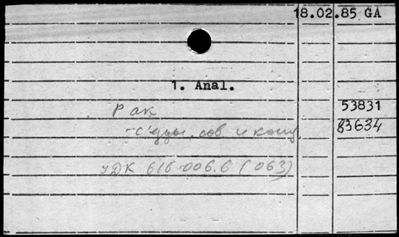 18.02.85 GA
1. Anal.
Рак 53831
-съезды, сов. и конф. 83634
УДК 616-006.6 (063)